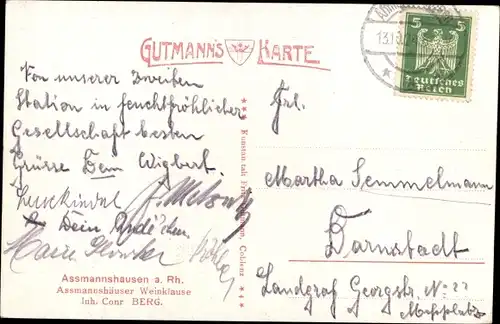 GUTMANN'S KARTE
Von unserer zweiten
Station in feuchtfröhlicher
Gesellschaft besten
Grüsse Dein Wigbert.
Dein
Assmannshausen a. Rh.
Assmannshäuser Weinklause
Inh. Conr BERG.
Kunstanstalt Coblenz
5 5
Deutsches
Reich
Frl.
Martha Semmelmann
Darmstadt
Landgraf Georgstr. No 22
Messplatz